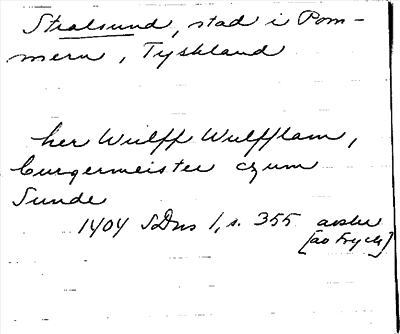 Stralsund, stad i Pom-
mern, Tyskland
her Wulff Wulfflam,
burgermeister czum
Sunde
1404 SDns 1, s. 355 avskr
[ao tryck]